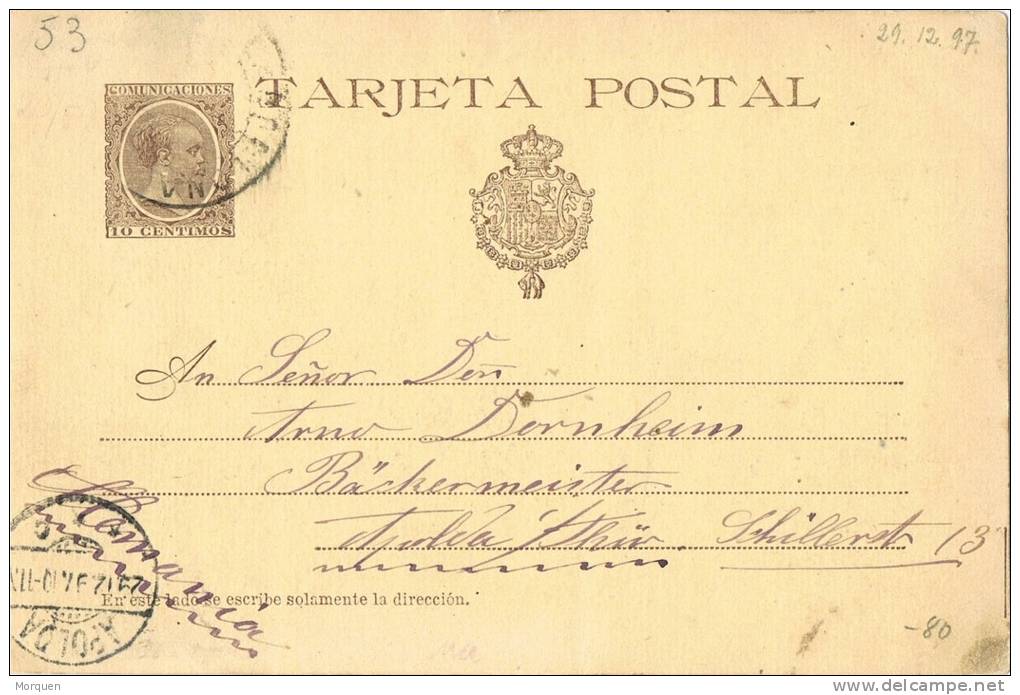 53
29.12.97.
TARJETA POSTAL
COMUNICACIONES
10 CENTIMOS
An Señor Don
Arno Dornheim
Bäckermeister
Apolda i/Thür. Schillerst 13
Alemania
APOLDA
En este lado se escribe solamente la dirección.
-80
Morquen
delcampe.net